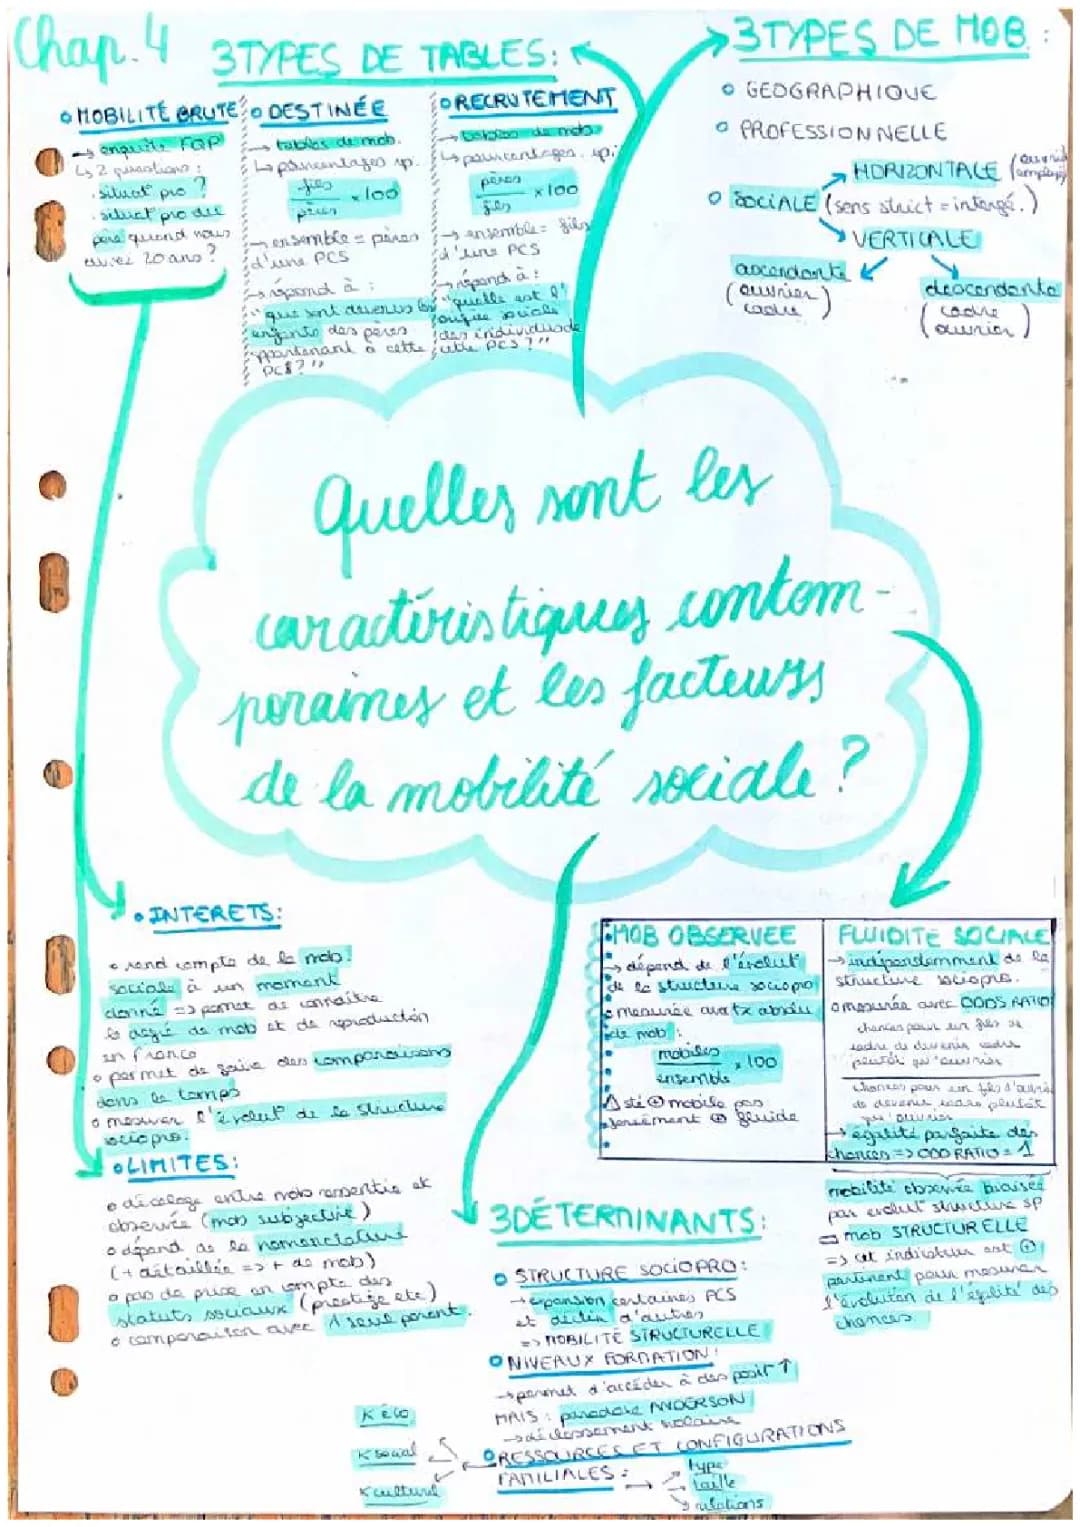 Chap. 4
3 TYPES DE TABLES :
• MOBILITÉ BRUTE
→ enquête FQP
↳ 2 questions :
. situat° pro ?
. situat° pro de
père quand vous
aviez 20 ans ?
• DESTINÉE
→ tables de mob.
↳ pourcentages sp.
fils
pères
x 100
→ ensemble = pères
d'une PCS
→ répond à :
"que sont devenus les
enfants des pères
appartenant à cette
PCS ?"
• RECRUTEMENT
→ tables de mob.
↳ pourcentages sp.
pères
fils
x 100
→ ensemble = fils
d'une PCS
→ répond à :
"quelle est l'
origine sociale
des individus de
cette PCS ?"
3 TYPES DE MOB :
• GEOGRAPHIQUE
• PROFESSIONNELLE
HORIZONTALE
• SOCIALE (sens strict = intergé.)
VERTICALE
ascendante
(ouvrier
cadre)
descendante
(cadre
ouvrier)
Quelles sont les
caractéristiques contem-
poraines et les facteurs
de la mobilité sociale ?
• INTERETS :
• rend compte de la mob.
sociale à un moment
donné => permet de connaître
le degré de mob et de reproduction
en France
• permet de faire des comparaisons
dans le temps
• mesurer l'évolut° de la structure
sociopro.
• LIMITES :
• décalage entre mob ressentie et
observée (mob subjective)
• dépend de la nomenclature
(+ détaillée => + de mob)
• pas de prise en compte des
statuts sociaux (prestige etc)
• comparaison avec 1 seul parent.
• MOB OBSERVEE
→ dépend de l'évolut°
de la structure sociopro
• mesurée avec tx absolu
de mob :
mobiles
ensemble
x 100
⚠ sté ⊕ mobile pas
forcément ⊕ fluide
FLUIDITE SOCIALE
→ indépendamment de la
structure sociopro.
• mesurée avec ODDS RATIO
chances pour un fils de
cadre de devenir cadre
plutôt qu'ouvrier
chances pour un fils d'ouvrier
de devenir cadre plutôt
qu'ouvrier
→ égalité parfaite des
chances => ODD RATIO = 1
mobilité observée biaisée
par evolut° structure SP
=> mob STRUCTURELLE
=> cet indicateur est ⊕
pertinent pour mesurer
l'évolution de l'égalité des
chances.
3 DÉTERMINANTS :
• STRUCTURE SOCIOPRO :
→ expansion certaines PCS
et déclin d'autres
=> MOBILITÉ STRUCTURELLE
• NIVEAUX FORMATION :
→ permet d'accéder à des posit° ↑
MAIS : paradoxe ANDERSON
→ déclassement scolaire
• RESSOURCES ET CONFIGURATIONS
FAMILIALES :
K éco
K social
K culturel
→ type
→ taille
→ relations